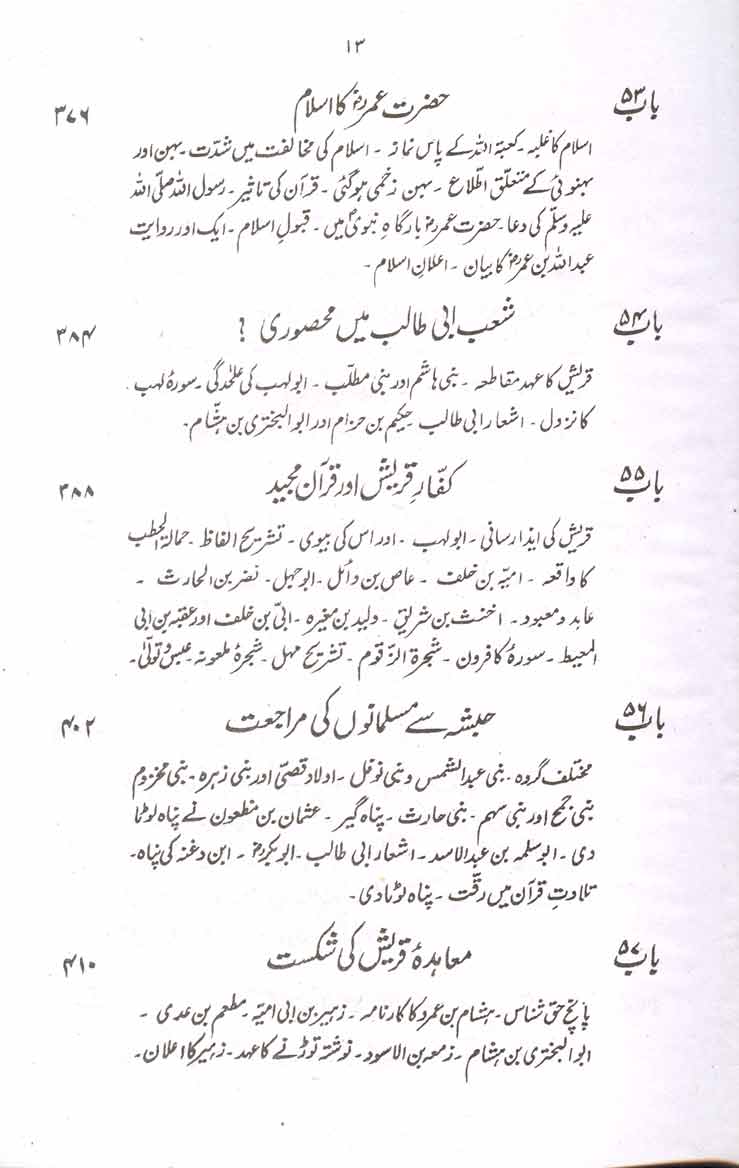 ۱۳
باب ۵۳ حضرت عمرؓ کا اسلام ۳۷۶
اسلام کا غلبہ۔ کعبۃ اللہ کے پاس نماز ۔ اسلام کی مخالفت میں شدّت ۔ بہن اور
بہنوئی کے متعلق اطّلاع ۔ بہن زخمی ہوگئی ۔ قرآن کی تاثیر۔ رسول اللہ صلّی اللہ
علیہ وسلّم کی دعا۔ حضرت عمرؓ بارگاہِ نبویؐ میں ۔ قبولِ اسلام ۔ ایک اور روایت
عبداللہ بن عمرؓ کا بیان ۔ اعلانِ اسلام ۔
باب ۵۴ شعب ابی طالب میں محصوری ؟ ۳۸۴
قریش کا عہد مقاطعہ ۔ بنی ہاشم اور بنی مطلّب ۔ ابولہب کی علٰحدگی ۔ سورۂ لہب
کا نزول ۔ اشعار ابی طالب حکیم بن حزام اور ابوالبختری بن ہشّام ۔
باب ۵۵ کفّارِ قریش اور قرآن مجید ۳۸۸
قریش کی ایذا رسانی ۔ ابولہب ۔ اور اس کی بیوی ۔ تشریح الفاظ ۔ حمالۃ الحطب
کا واقعہ ۔ امیّہ بن خلف ۔ عاص بن وائل ۔ ابوجہل ۔ نضر بن الحارث ۔
عابد و معبود ۔ اخنث بن شریق ۔ ولید بن مغیرہ ۔ ابیّ بن خلف اور عقبہ بن ابی
المعیط ۔ سورۂ کافرون ۔ شجرۃ الزّقوم ۔ تشریح مہل ۔ شجرۂ ملعونہ ۔ عبس وتولّیٰ ۔
باب ۵۶ حبشہ سے مسلمانوں کی مراجعت ۴۰۲
مختلف گروہ ۔ بنی عبدالشمس و بنی نوفل ۔ اولاد قصیّ اور بنی زہرہ ۔ بنی مخزوم
بنی جمح اور بنی سہم ۔ بنی حارث ۔ پناہ گیر ۔ عثمان بن مظعون نے پناہ لوٹا
دی ۔ ابوسلمہ بن عبدالاسد ۔ اشعار ابی طالب ۔ ابوبکرؓ ۔ ابن دغنہ کی پناہ ۔
تلاوتِ قرآن میں رقّت ۔ پناہ لوٹا دی ۔
باب ۵۷ معاہدۂ قریش کی شکست ۴۱۰
پانچ حق شناس ۔ ہشام بن عمرو کا کارنامہ ۔ زہیر بن ابی امیّہ ۔ مطعم بن عدی ۔
ابوالبختری بن ہشام ۔ زمعہ بن الاسود ۔ نوشتہ توڑنے کا عہد ۔ زہیر کا اعلان ۔